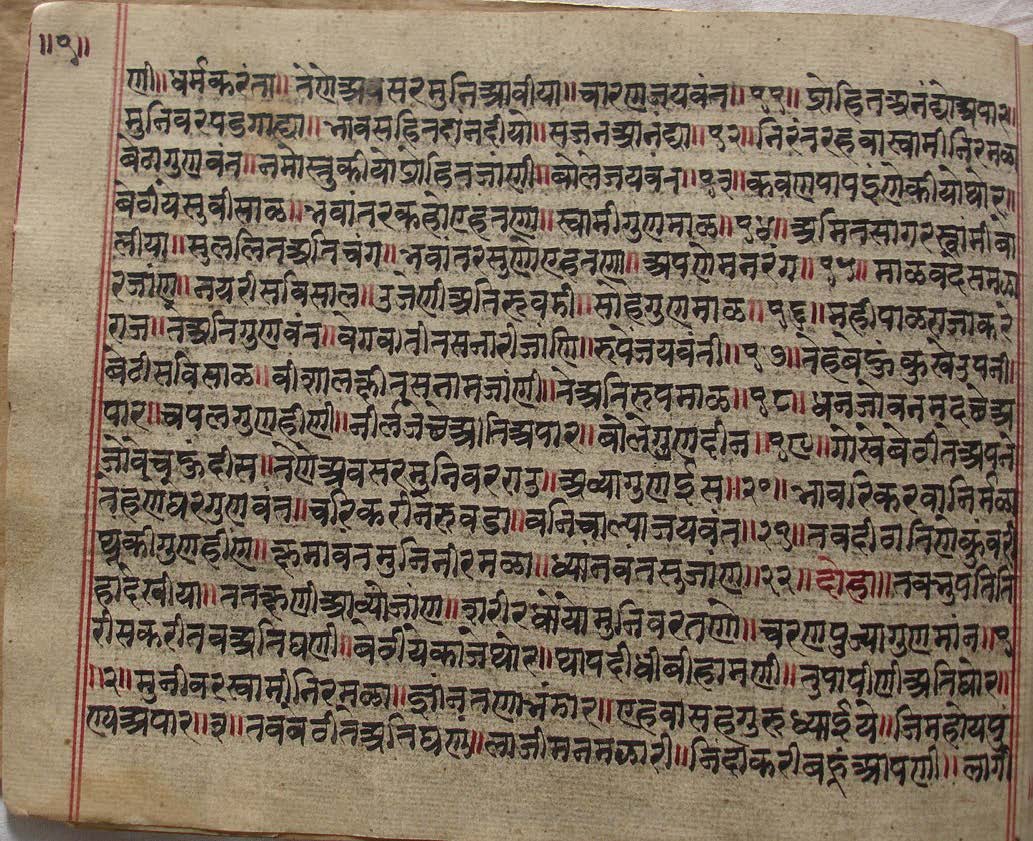 ॥९॥
णी॥ धर्म करंता॥ तेणे अवसर मुनि आवीया॥ चारण जयवंत॥११॥ प्रोहित अनंद्यो अपार॥
मुनिवर पडगाह्या॥ भाव सहित दान दीयो॥ सजन आनंद्या॥१२॥ निरंतर हवा स्वामी निरमळा
बेठा गुणवंत॥ नमोस्तु कीयो प्रोहित जांणी॥ बोले जयवंत॥१३॥ कवण पाप इंणे कीयो घोर॥
बेटीय सुवीसाळ॥ भवांतर कहो एह तणा॥ स्वामी गुणमाळ॥१४॥ अमितसागर स्वामी वो
लीया॥ सुललित अति चंग॥ भवांतर सुणो एह तणा॥ अपणे मन रंग॥१५॥ माळव देस मझा
र जांणु॥ नयरी सविसाल॥ उजेणी अति रुवडी॥ सोहे गुणमाळ॥१६॥ महीपाळ राजा करे
राज॥ ते अति गुणवंत॥ वेगवाती तस नारी जांणि॥ रुपे जयवंती॥१७॥ तेह बेहुं कुखे उपनी॥
बेटी सविसाळ॥ वीशालक्षी तस नाम जांणी॥ ते अति रुपमाळ॥१८॥ धन जोवन मद चढे अ
पार॥ चपल गुणहीणी॥ नीर्लज चढे अति अपार॥ बोले गुण दीन॥१९॥ गोखे बेठी ते अपुने
जोवे चहुं दीस॥ तेणे अवसर मुनिवर राउ॥ आव्या गुण ईस॥२०॥ भावरि करवा निर्मळा
तेह तणे घर गुणवंत॥ चरि करी ने रुवडा॥ वनि चाल्या जयवंत॥२१॥ तव दीठा तिणे कुंवरी
थुकी गुणहीण॥ क्षमावंत मुनि नीरमळा॥ ध्यानवंत सुजांण॥२२॥ दोहा॥ तव नुपति ति
हां देखीया॥ ततक्षणी आव्यो जांण॥ शरीर धोयो मुनिवर तणो॥ चरण पुज्या गुणमांन॥१
रीस करी तव अति घणी॥ बेटीय कांजे थोर॥ थाप दीधी बीहामणी॥ तु पापीणी अति घोर॥
॥२॥ मुनीवर स्वामी निरमळा॥ ज्ञान तणा भंडार॥ एहवा सहगुरु ध्याईये॥ जिम होय पुं
ण्य अपार॥३॥ तव बेटी ते अति घणुं॥ लाजी मन मझारी॥ निंदा करी बहुं आपणी॥ लागी